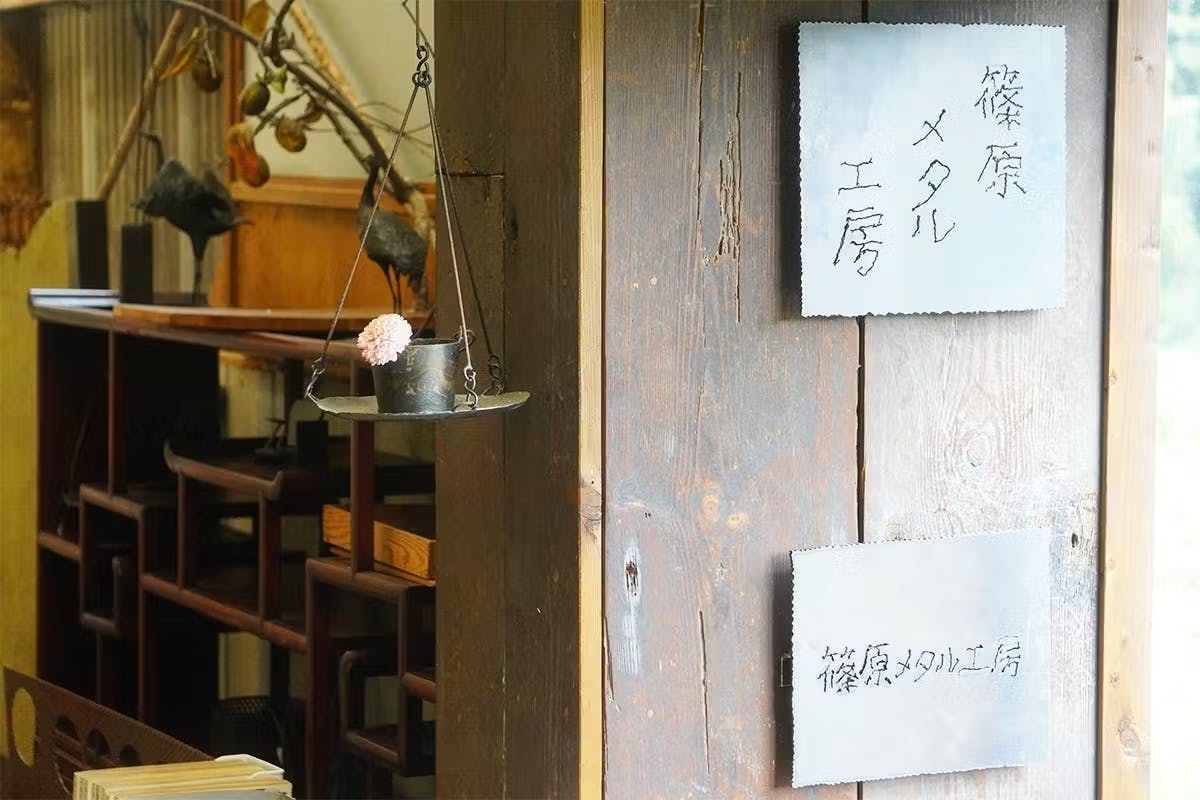 篠原
メタル
工房
篠原メタル工房